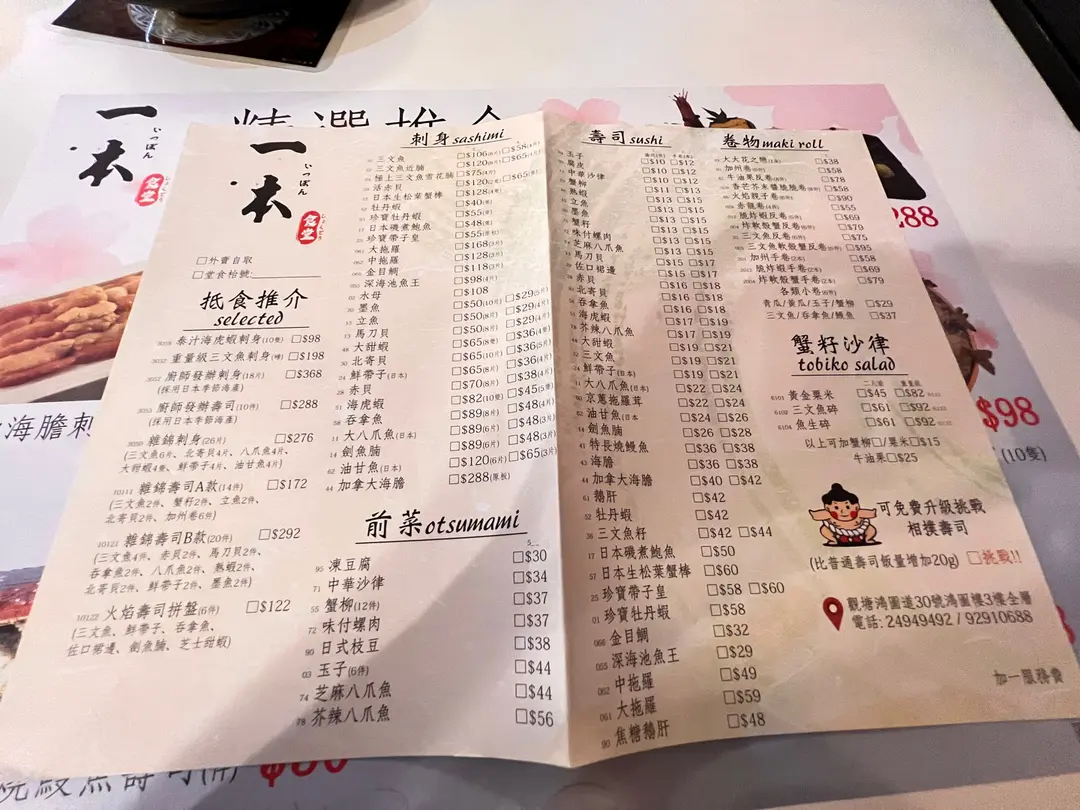 一本
いっぽん
食堂
精選推介
刺身 sashimi
三文魚
三文魚近腩
極上三文魚雪花腩
活赤貝
日本生松葉蟹棒
牡丹蝦
珍寶牡丹蝦
日本磯煮鮑魚
珍寶帶子皇
大拖羅
中拖羅
金目鯛
深海池魚王
水母
墨魚
立魚
馬刀貝
大甜蝦
北寄貝
鮮帶子(日本)
赤貝
海虎蝦
吞拿魚
大八爪魚(日本)
劍魚腩
油甘魚(日本)
加拿大海膽
□$108
□$288(原板)
□外賣自取
□堂食枱號:
抵食推介
selected
泰汁海虎蝦刺身(10隻) □$98
重量級三文魚刺身(磅) □$198
廚師發辦刺身(18片) □$368
(採用日本季節海產)
廚師發辦壽司(10件) □$288
(採用日本季節海產)
雜錦刺身(26片) □$276
(三文魚6片、北寄貝4片、八爪魚4片、
大甜蝦4隻、鮮帶子4片、油甘魚4片)
雜錦壽司A款(14件) □$172
(三文魚2件、蟹籽2件、立魚2件、
北寄貝2件、加州卷6件)
雜錦壽司B款(20件) □$292
(三文魚4件、赤貝2件、馬刀貝2件、
吞拿魚2件、八爪魚2件、熟蝦2件、
北寄貝2件、鮮帶子2件、墨魚2件)
10122 火焰壽司拼盤(6件) □$122
(三文魚、鮮帶子、吞拿魚、
佐口裙邊、劍魚腩、芝士甜蝦)
前菜 otsumami
95 凍豆腐 □$30
71 中華沙律 □$34
55 蟹柳(12件) □$37
72 味付螺肉 □$37
90 日式枝豆 □$38
03 玉子(6件) □$44
74 芝麻八爪魚 □$44
78 芥辣八爪魚 □$56
壽司 sushi
玉子 □$10 □$12
腐皮 □$10 □$12
中華沙律 □$10 □$12
蟹柳 □$11 □$13
熟蝦 □$13 □$15
立魚 □$13 □$15
墨魚 □$13 □$15
蟹籽 □$13 □$15
味付螺肉 □$13 □$15
芝麻八爪魚 □$13 □$15
馬刀貝 □$15 □$17
佐口裙邊 □$15 □$17
赤貝 □$16 □$18
北寄貝 □$16 □$18
吞拿魚 □$16 □$18
海虎蝦 □$17 □$19
芥辣八爪魚 □$17 □$19
大甜蝦 □$19 □$21
三文魚 □$19 □$21
鮮帶子(日本) □$19 □$21
大八爪魚(日本) □$22 □$24
京蔥拖羅茸 □$22 □$24
油甘魚(日本) □$24 □$26
劍魚腩 □$26 □$28
特長燒鰻魚 □$36 □$38
海膽 □$36 □$38
加拿大海膽 □$40 □$42
鵝肝 □$42
牡丹蝦 □$42
三文魚籽 □$42 □$44
日本磯煮鮑魚 □$50
日本生松葉蟹棒 □$60
珍寶帶子皇 □$58 □$60
珍寶牡丹蝦 □$58
金目鯛 □$32
深海池魚王 □$29
中拖羅 □$49
大拖羅 □$59
焦糖鵝肝 □$48
卷物 maki roll
大大花之戀 □$38
加州卷 □$58
牛油果反卷 □$78
香芒芥末醬燒鰻卷 □$58
火焰親子卷 □$90
赤龍卷 □$55
脆炸蝦反卷 □$69
炸軟殼蟹反卷 □$79
三文魚反卷 □$75
三文魚軟殼蟹反卷 □$95
加州手卷(2本) □$58
脆炸蝦手卷(2本) □$69
炸軟殼蟹手卷(2本) □$79
各類小卷(6件)
青瓜/黃瓜/玉子/蟹柳 □$29
三文魚/吞拿魚/鰻魚 □$37
蟹籽沙律
tobiko salad
二人前 重量級
6101 黃金粟米 □$45 □$82
6102 三文魚碎 □$61 □$92
6104 魚生碎 □$61 □$92
以上可加蟹柳□/粟米□$15
牛油果□$25
可免費升級挑戰
相撲壽司
(比普通壽司飯量增加20g) □挑戰!!
觀塘鴻圖道30號鴻圖樓3樓全層
電話: 24949492 / 92910688
加一服務費
海膽刺
288
$98
(10隻)